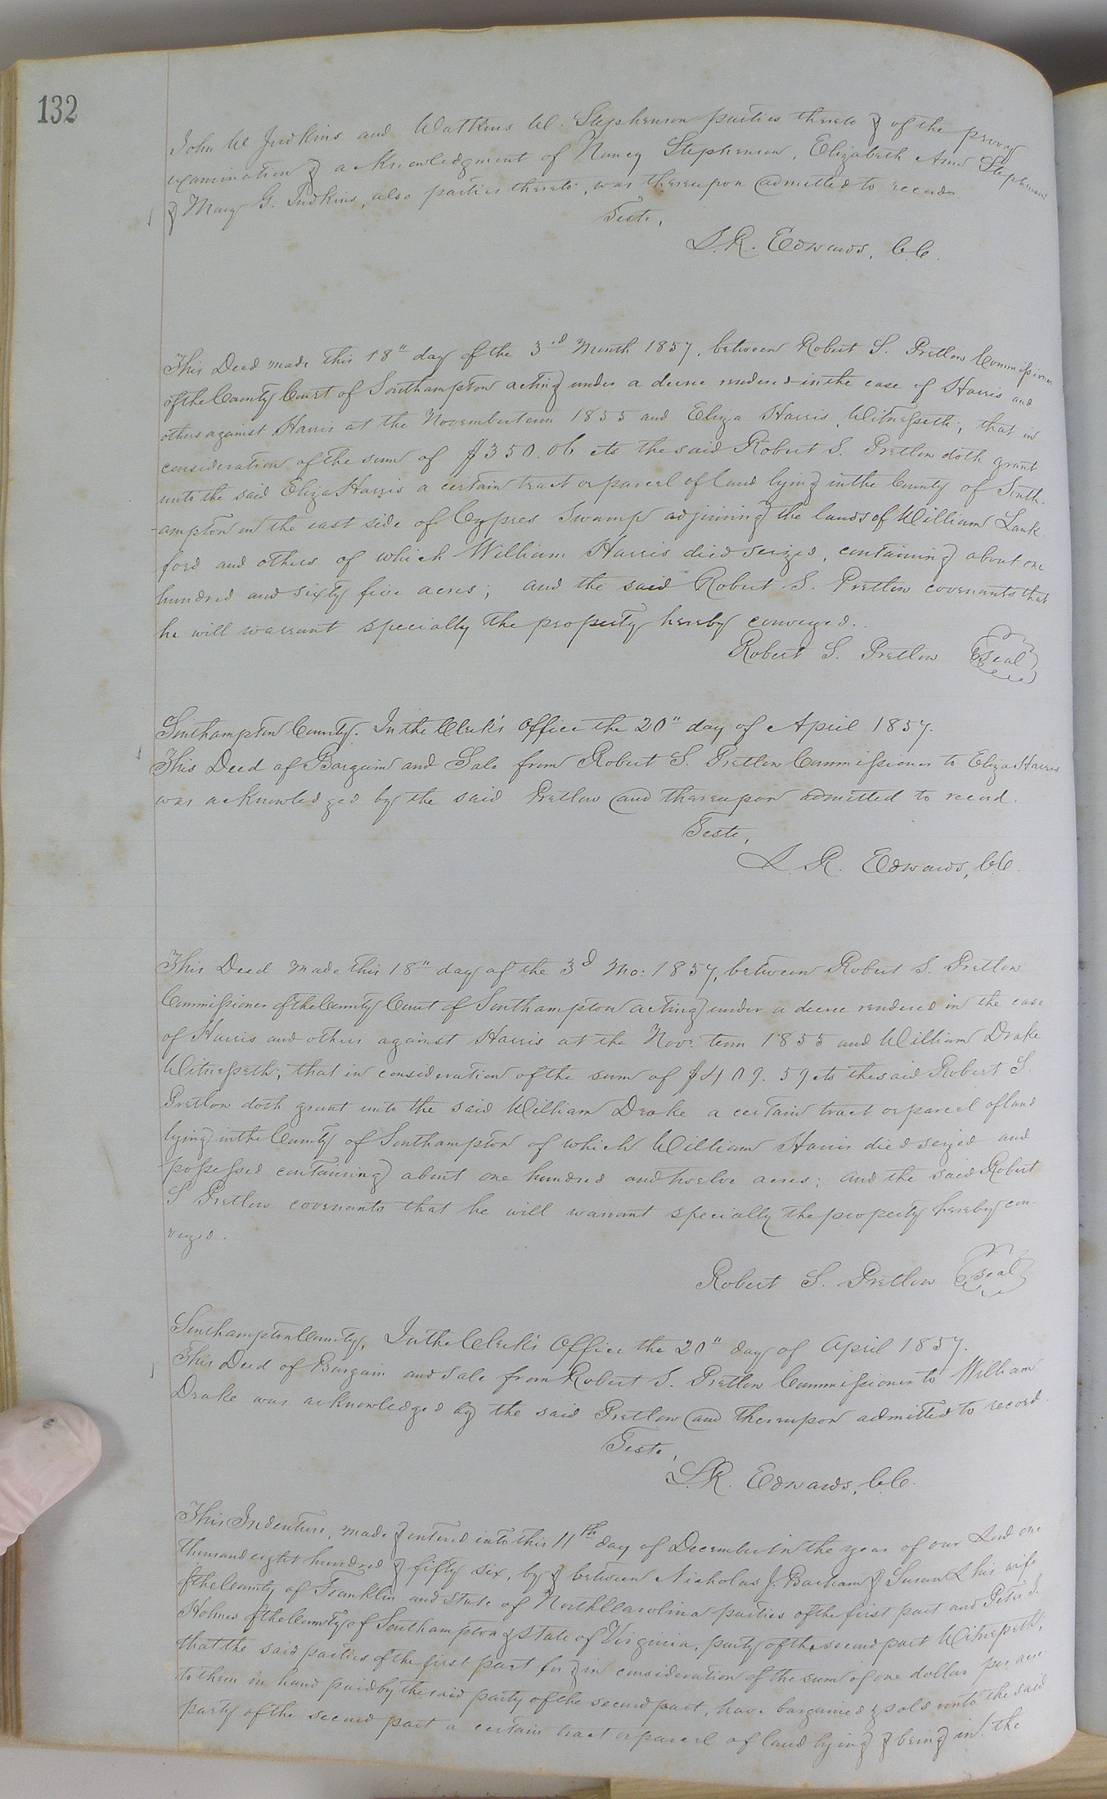 132
John W Judkins and Watkins W. Stephenson parties thereto & of the privy
examination & acknowledgment of Nancy Stephenson, Elizabeth Ann Stephenson
& Mary G. Judkins, also parties thereto, was thereupon admitted to record.
Teste,
L. R. Edwards, C.C.
This Deed made this 18" day of the 3rd Month 1857, between Robert S. Pretlow Commissioner
of the County Court of Southampton acting under a decree rendered in the case of Harris and
others against Harris at the November term 1855 and Eliza Harris, Witnesseth; that in
consideration of the sum of $350.06 cts the said Robert S. Pretlow doth grant
unto the said Eliza Harris a certain tract or parcel of land lying in the County of South-
-ampton on the east side of Cypres Swamp adjoining the lands of William Lank
ford and others of which William Harris died seized, containing about one
hundred and sixty five acres; and the said Robert S. Pretlow covenants that
he will warrant specially the property hereby conveyed.
Robert S. Pretlow Seal
Southampton County. In the Clerk's Office the 20" day of April 1857.
This Deed of Bargain and Sale from Robert S. Pretlow Commissioner to Eliza Harris
was acknowledged by the said Pretlow and thereupon admitted to record.
Teste,
L. R. Edwards, C.C.
This Deed made this 18" day of the 3d Mo: 1857, between Robert S. Pretlow
Commissioner of the County Court of Southampton acting under a decree rendered in the case
of Harris and others against Harris at the Nov: term 1855 and William Drake
Witnesseth; that in consideration of the sum of $409.59 cts the said Robert S.
Pretlow doth grant unto the said William Drake a certain tract or parcel of land
lying in the County of Southampton of which William Harris died seized and
possessed containing about one hundred and twelve acres; and the said Robert
S Pretlow covenants that he will warrant specially the property hereby con-
veyed.
Robert S. Pretlow Seal
Southampton County, In the Clerk's Office the 20" day of April 1857.
This Deed of Bargain and Sale from Robert S. Pretlow Commissioner to William
Drake was acknowledged by the said Pretlow and thereupon admitted to record
Teste,
L. R. Edwards, C.C.
This Indenture, made & entered into this 11th day of December in the year of our Lord one
thousand eight hundred & fifty six, by & between Nicholas J. Barham & Susan L his wife
of the County of Franklin and State of North Carolina parties of the first part and Peter
Holmes of the County of Southampton & State of Virginia, party of the second part Witnesseth,
that the said parties of the first part for & in consideration of the sum of one dollar per acre
to them in hand paid by the said party of the second part, have bargained & sold unto the said
party of the second part a certain tract or parcel of land lying & being in the